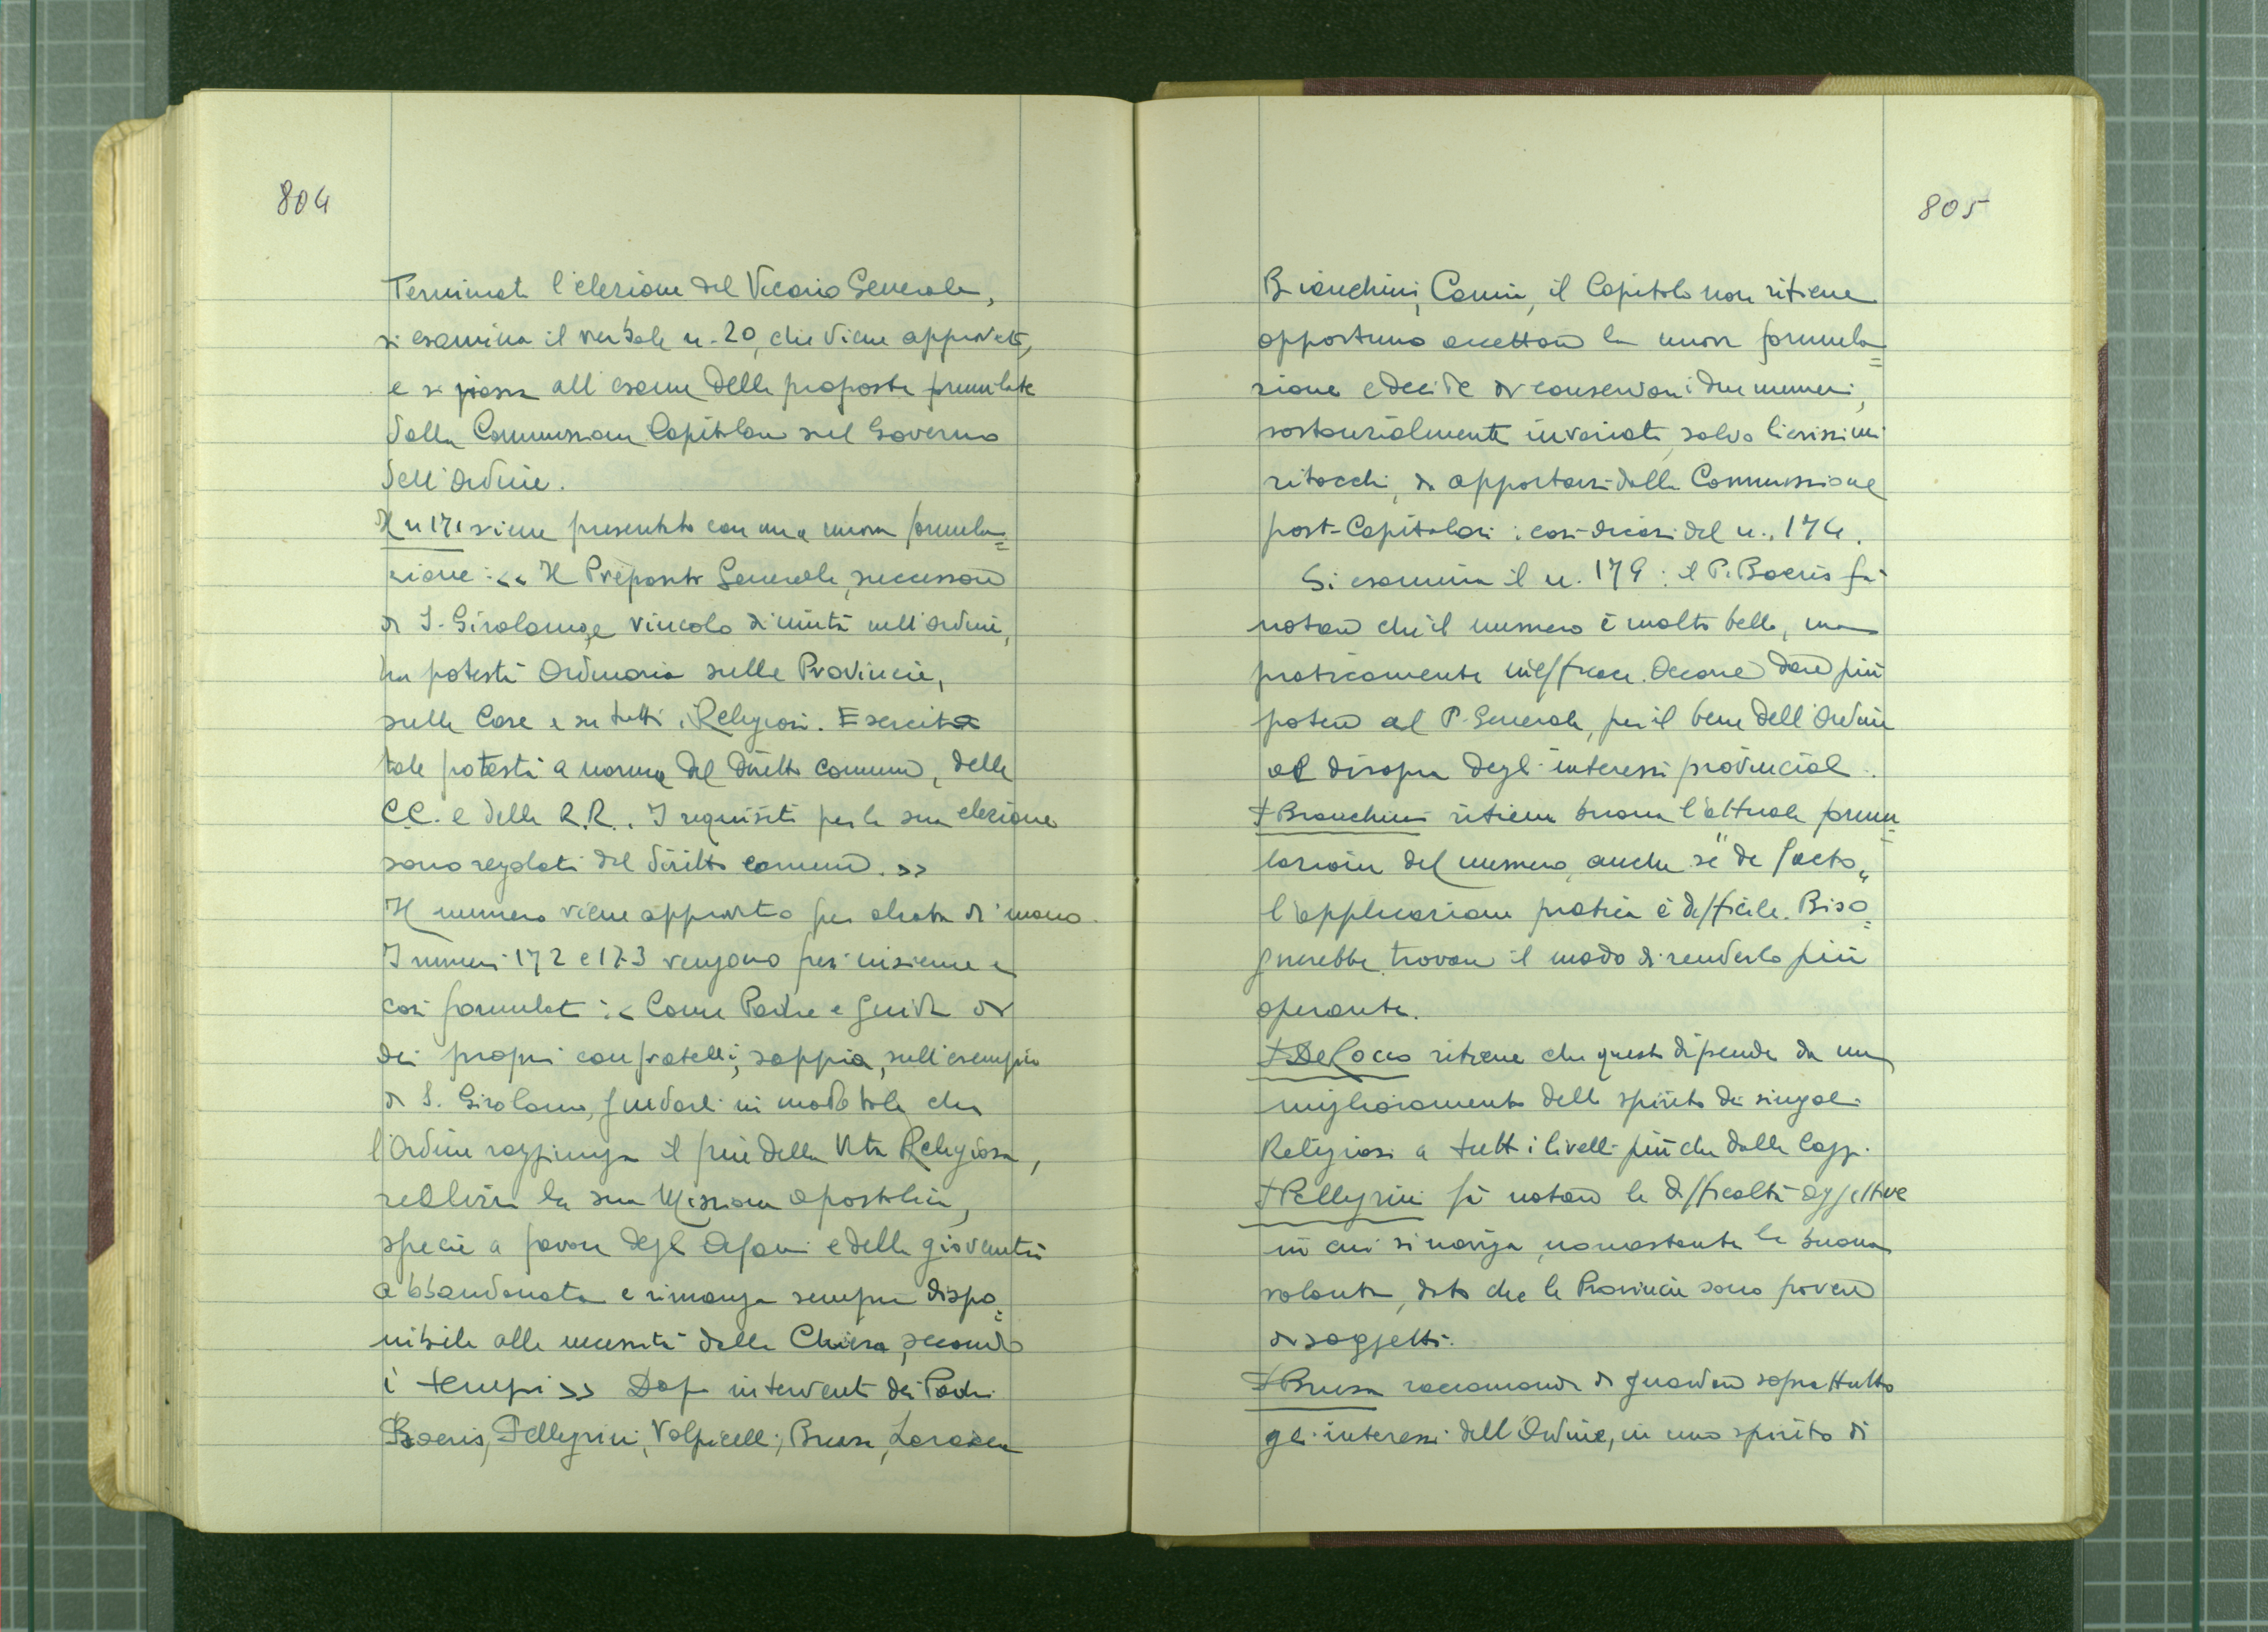 804
Terminata l'elezione del Vicario Generale,
si esamina il verbale n. 20, che viene approvato,
e si passa all'esame delle proposte formulate
dalla Commissione Capitolare sul Governo
dell'Ordine.
Il n 171 viene presentato con una nuova formula=
zione: << Il Preposito Generale, successore
di S. Girolamo, e vincolo di unità nell'Ordine,
ha potestà Ordinaria sulle Provincie,
sulle Case e su tutti i Religiosi. Esercita
tale potestà a norma del diritto comune, delle
C.C. e delle R.R.. I requisiti per la sua elezione
sono regolati dal diritto comune. >>
Il numero viene approvato per alzata di mano.
I numeri 172 e 173 vengono presi insieme e
così formulati: < Come Padre e guida di
dei propri confratelli, sappia, sull'esempio
di S. Girolamo, guidarli in modo tale che
l'Ordine raggiunga il fine della Vita Religiosa,
realizzi la sua Missione apostolica,
specie a favore degli Orfani e della gioventù
abbandonata e rimanga sempre dispo=
nibile alle necessità della Chiesa, secondo
i tempi >> Dopo interventi dei Padri
Boeris, Pellegrini, Volpicelli, Brusa,
805
Bianchini, Camin, il Capitolo non ritiene
opportuno accettare la nuova formula=
zione e decide di conservare i due numeri,
sostanzialmente invariati, salvo lievissimi
ritocchi, da apportarsi dalla Commissione
post-Capitolare: così dicasi del n. 174.
Si esamina il n. 179: il P. Boeris fa
notare che il numero è molto bello, ma
praticamente inefficace. Occorre dare più
potere al P. Generale, per il bene dell'Ordine
al disopra degli interessi provinciali.
P Bianchini ritiene buona l'attuale formu=
lazione del numero, anche se "de facto"
l'applicazione pratica è difficile. Biso=
gnerebbe trovare il modo di renderlo più
operante.
P De Rocco ritiene che questo dipende da un
miglioramento dello spirito dei singoli
Religiosi a tutti i livelli più che dalle leggi.
P Pellegrini fa notare le difficoltà oggettive
in cui si naviga, nonostante la buona
volontà, dato che le Provincie sono povere
di soggetti.
P Brusa raccomanda di guardare soprattutto
gli interessi dell'Ordine, in uno spirito di